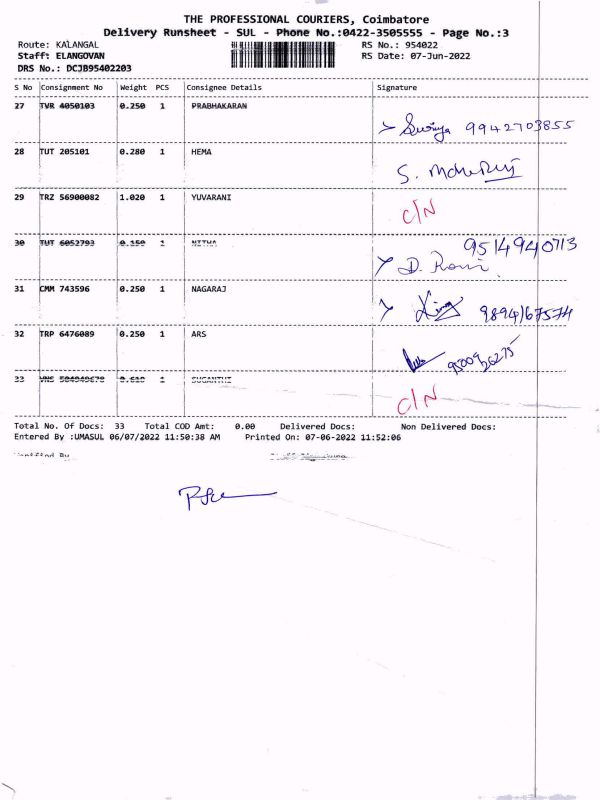 THE PROFESSIONAL COURIERS, Coimbatore
Delivery Runsheet - SUL - Phone No.:0422-3505555 - Page No.:3
Route: KALANGAL RS No.: 954022
Staff: ELANGOVAN RS Date: 07-Jun-2022
DRS No.: DCJB95402203
S No Consignment No Weight PCS Consignee Details Signature
27 TVR 4050103 0.250 1 PRABHAKARAN
Suriya 9942703855
28 TUT 205101 0.280 1 HEMA
S.
29 TRZ 56900082 1.020 1 YUVARANI
C/N
30 TUT 6052793 0.150 1 NITHA 9514940713
D. Rani
31 CMM 743596 0.250 1 NAGARAJ
9894167574
32 TRP 6476089 0.250 1 ARS
9500926275
33 SUGANTHI
C/N
Total No. Of Docs: 33 Total COD Amt: 0.00 Delivered Docs: Non Delivered Docs:
Entered By :UMASUL 06/07/2022 11:50:38 AM Printed On: 07-06-2022 11:52:06